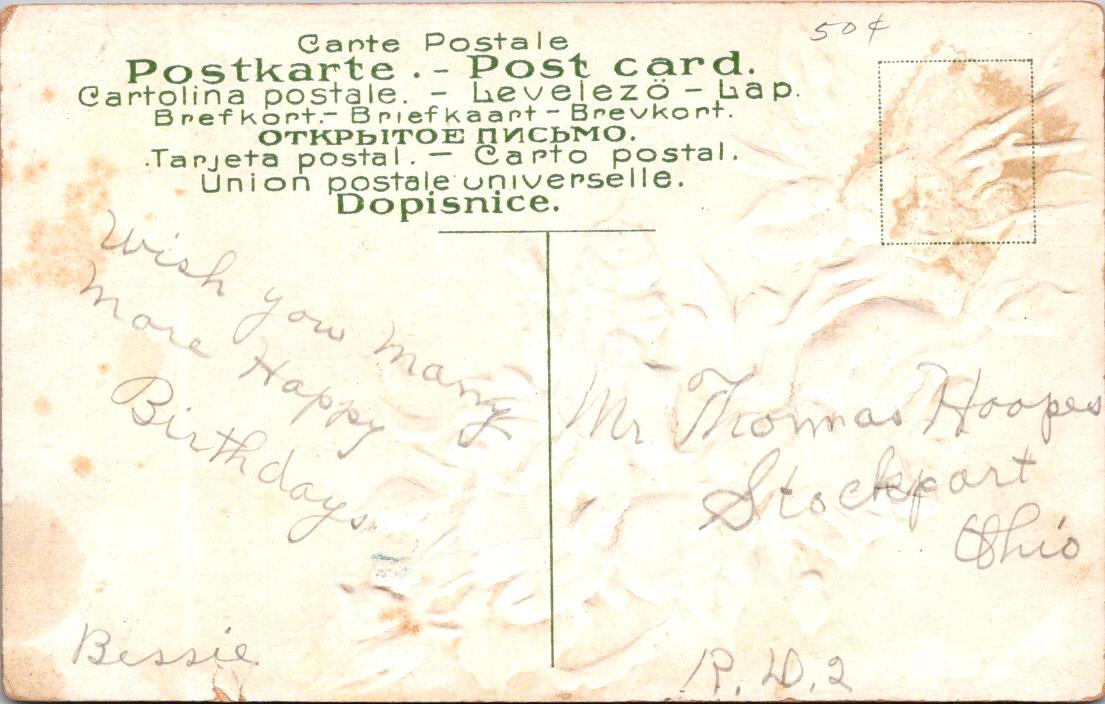 50¢
Carte Postale
Postkarte . - Post card.
Cartolina postale. - Levelezö - Lap.
Brefkort.- Briefkaart - Brevkort.
ОТКРЫТОЕ ПИСЬМО.
.Tarjeta postal. - Carto postal.
Union postale universelle.
Dopisnice.
Wish you many
more Happy
Birthdays
Bessie
Mr Thomas Hoopes
Stockport
Ohio
R. D. 2